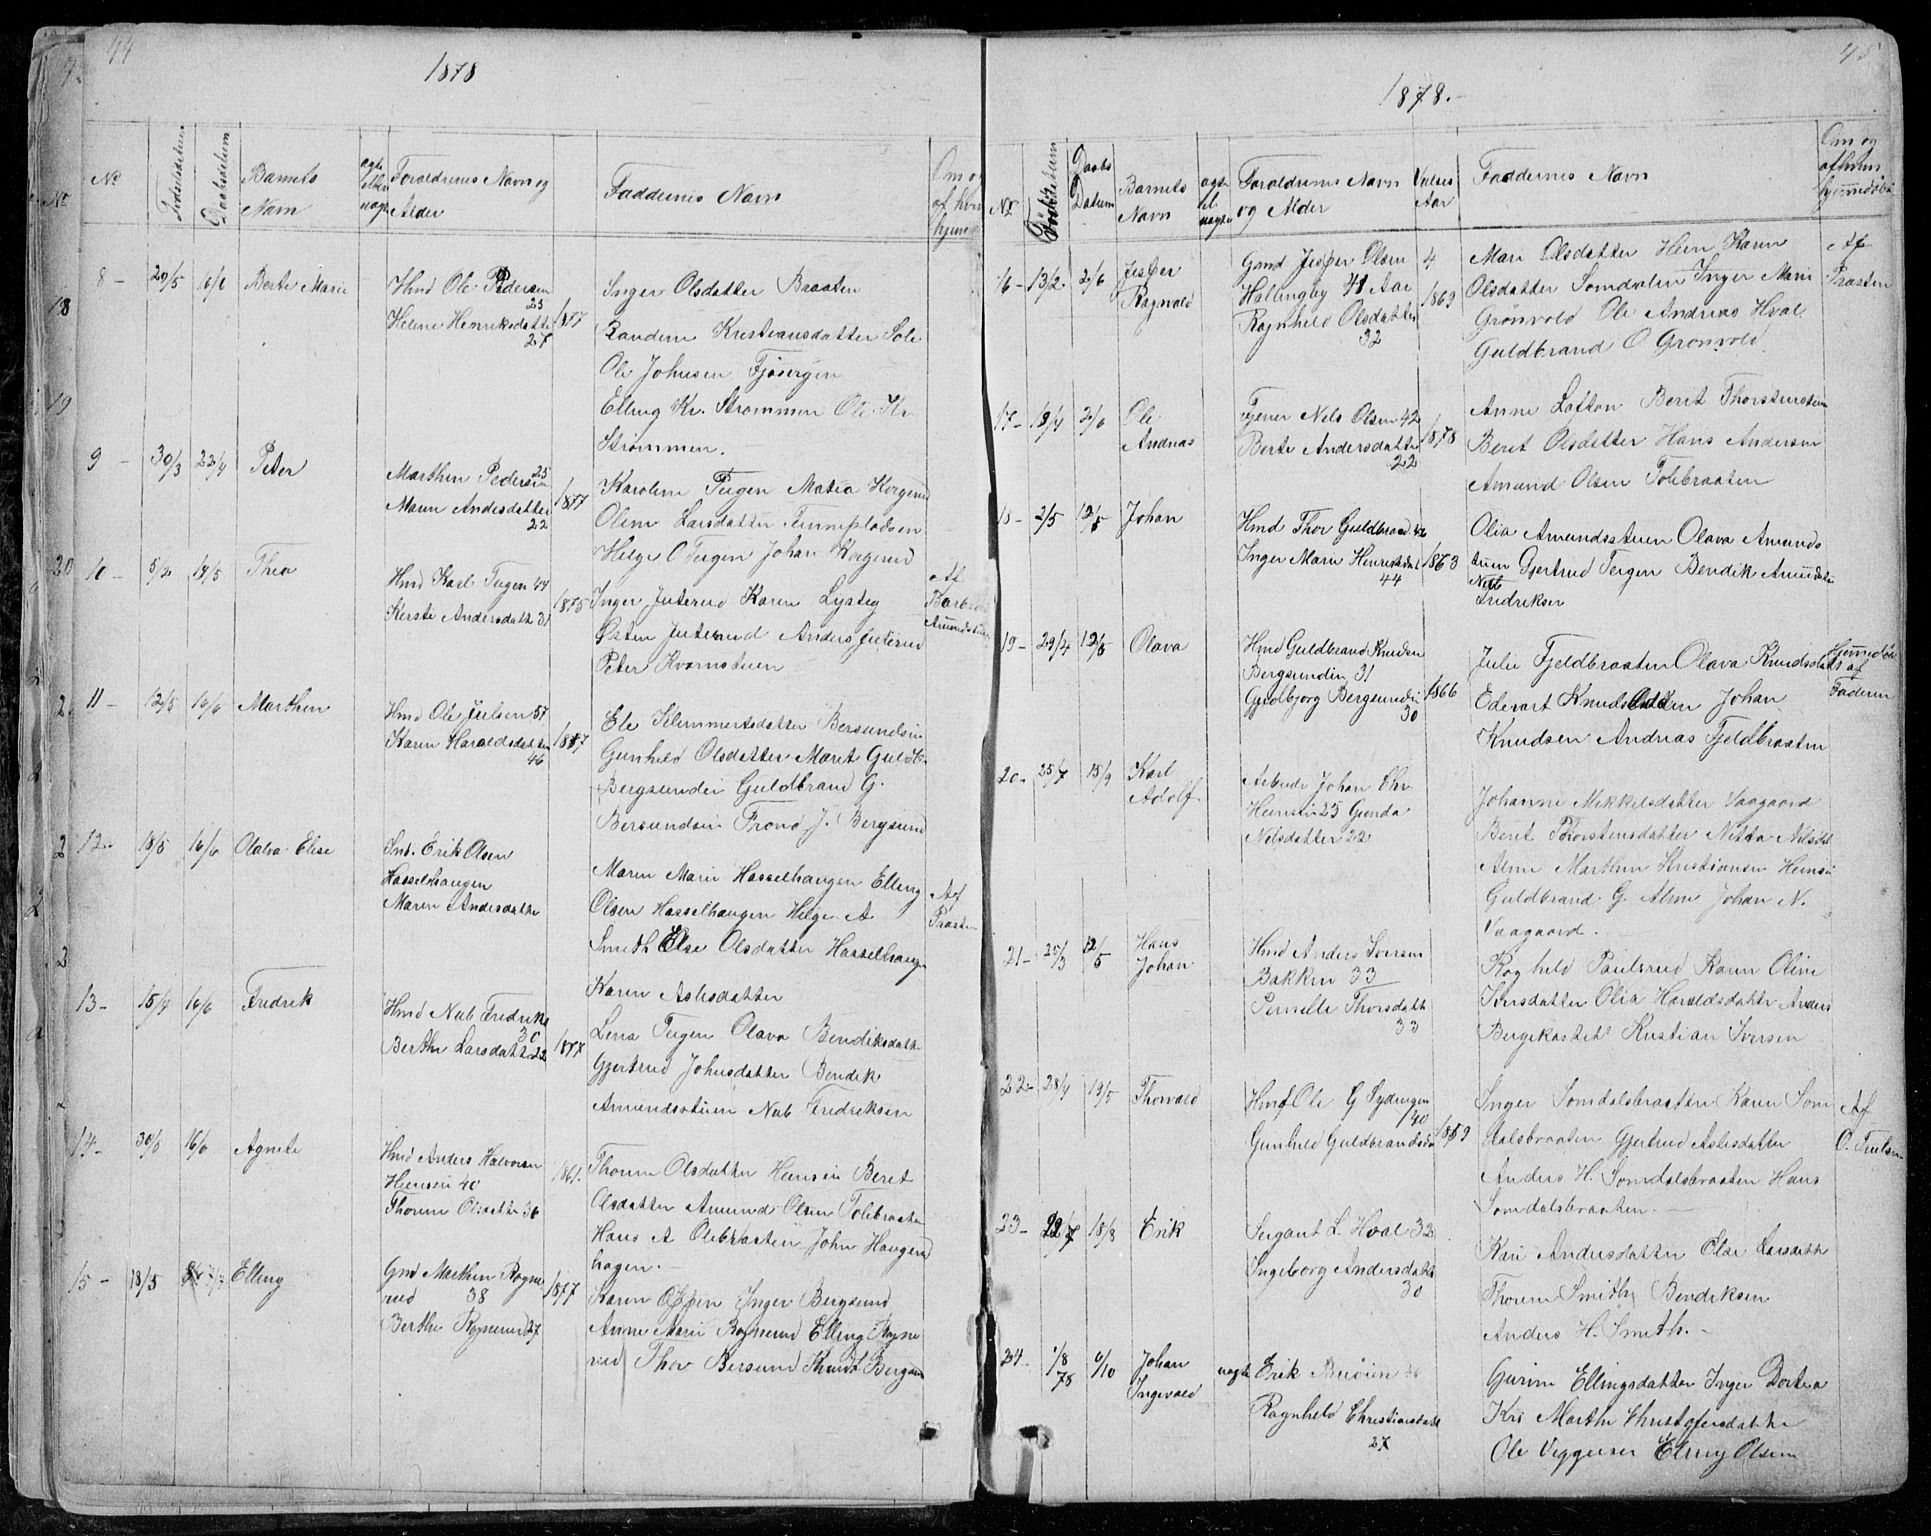 44
1878
No
Fødselsdatum
Daabsdatum
Barnets Navn
ægte eller uægte
Forældrenes Navn og Alder
Faddernes Navn
Om og af hvem hjemme
8 - 20/5 16/6 Berte Marie
Hmd Ole Pedersen 25
Helene Henriksdatter 27
1877
Inger Olsdatter Braaten
Randine Kristiansdatter Sole
Ole Johnsen
Elling Kr. Strømmen Ole Kr
Strømmen.
9 - 30/3 22/4 Peter
Marthin Pedersen 25
Maren Andersdatter 22
1877
Karoline Teigen Matea Horgerud
Oline Larsdatter
Helge O Teigen Johan Horgerud
10 - 5/2 19/5 Thea
Hmd Karl Teigen 44
Kersti Andersdatt 31
1875
Inger Juterud Karen Lysteg
Østen Juterud Anders Juterud
Peter Kvernstuen
Af
Amundstuen
11 - 12/5 16/6 Marthin
Hmd Ole Juelsen 57
Karen Haraldsdatter 46
1857
Ele Klemmertsdatter Bersundsin
Gunhild Olsdatter Maret Guldb.
Bergsundei Guldbrand G.
Bersundsin Trond J. Bergsund
12 - 18/5 16/6 Olava Elise
Erik Olsen
Hasselhaugen
Maren Andersdatte
Maren Marie Hasselhaugen Elling
Olsen Hasselhaugen Helge A
Smeth Else Olsdatter Hasselhaugen
Karen Aslesdatter
Af
Præsten
13 - 15/4 16/6 Fredrik
Hmd Nils Fredriks 30
Berthe Larsdatter 22
1877
Lena Teigen Olava Bendiksdatt
Gjertrud Johnsdatter Bendik
Amundsstuen Nils Fredriksen
14 - 30/5 16/6 Agnete
Hmd Anders Halvorsen
Heensin 40
Thorine Olsdatter 36
1861.
Thorine Olsdatter Heensin Beret
Olsdatter Amund Olsen Tolebraaten
Hans A Olebraatin John Haugen
hagen.
15 - 18/5 Elling
Gmd Marthin Rogne
rud 38
Berthe Rognerud 27
1877
Karen Oppen Inger Bergsund
Anne Marie Rognerud Elling Rogne
rud Thor Bersund Knudt Bergsun
45
1878.-
No
Fødselsdatum
Daabs Datum
Barnets Navn
ægte el uægte
Forældrenes Navn og Alder
Vielses Aar
Faddernes Navn
Om og af hvem hjemmedøbt
16 - 13/2 2/6 Jesper Ragnvald
Gmd Jesper Olsen 4
Hallingby 41 Aar
Ragnhild Olsdatter 32
1869
Mari Olsdatter Heen Karen
Olsdatter Somdalen Inger Marie
Grønvold Ole Andreas Hval
Guldbrand O Grønvold
Af
Præsten
17 - 18/4 2/6 Ole Andreas
Tjener Nels Olsen 42
Berte Andersdatter 22
1878
Anne Lofton Berit Thorstensten
Beret Olsdatter Hans Andersen
Amund Olsen Tolebraaten
18 - 2/5 12/5 Johan
Hmd Thor Guldbrand 42
Inger Marie Henriksdat 44
1863
Olia Amundsstuen Olava Amunds
tuen Gjertrud Teigen Bendik Amundstu
Nils
Fredriksen
19 - 29/4 12/5 Olava
Hmd Guldbrand Knudsen
Bergsundin 31
Gjedbjorg Bergsundei 30
1866
Julie Fjeldbraaten Olava Knudsdat
Edevart Knudsen Johan
Knudsen Andreas Fjeldbraaten
Hjemmedøbt
af
Faderen
20 - 25/7 15/9 Karl Adolf
Arbeide Johan Chr
Heensin 25 Gunda
Nelsdatter 22
Johanne Mikkelsdatter Vaagaard
Beret Thorstensdatter Nikka Nelsdat
Alme Marthin Kristiansen Heensin
Guldbrand G. Alme Johan N.
Vaagaard.
21 - 25/3 12/5 Hans Johan
Hmd Anders Iversen
Bakken 33
Pernille Thorsdatt
33
Raghild Paulsrud Karen Oline
Iversdatter Olia Haraldsdatte Anders
Bergekastet Kristian Iversen
22 - 28/4 19/5 Thorvald
Hmd Ole G Sydengen 40
Gunhild Guldbrandsda
1859
Inger Somdalsbraaten Karen Som
dalsbraaten Gjertrud Aslesdatter
Anders H. Somdalsbraaten Hans
Somdalsbraaten.
Af
O. Juelsen
23 - 22/7 18/8 Erik
Sergant L. Hval 32
Ingeborg Andersdatt 30
Kari Andersdatter Else Larsdatt
Thorine Smithy Bendiksen
Anders H. Smeth.-
24 - 1/8 78 6/10 Johan Ingevald uægte
Erik Buioien
Ragnhild Christiansdatt
27
Gurine Ellingsdatter Inger Dortea
Kri Marthe Christofersdatte
Ole Viggersen Elling Olsen